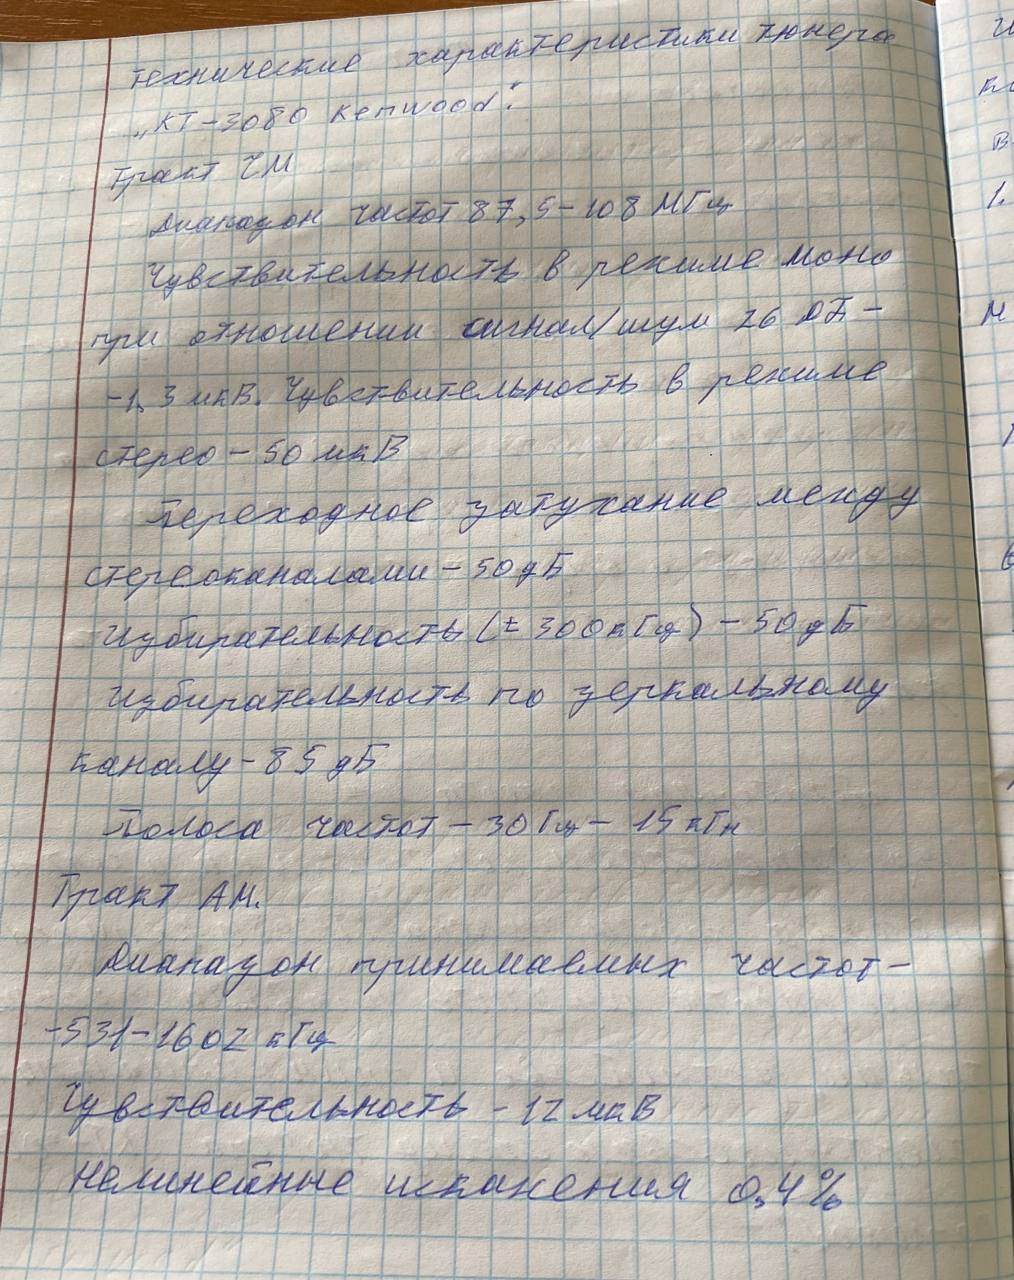 технические характеристики тюнера
„КТ-3080 Kenwood":
Тракт ЧМ
Диапазон частот 87,5-108 МГц
Чувствительность в режиме моно
при отношении сигнал/шум 26 дБ -
-1,3 мкВ. Чувствительность в режиме
стерео - 50 мкВ
Переходное затухание между
стереоканалами - 50 дБ
Избирательность (± 300 кГц) - 50 дБ
Избирательность по зеркальному
каналу - 85 дБ
Полоса частот - 30 Гц - 15 кГц
Тракт АМ.
Диапазон принимаемых частот -
-531-1602 кГц
Чувствительность - 12 мкВ
Нелинейные искажения 0,4%